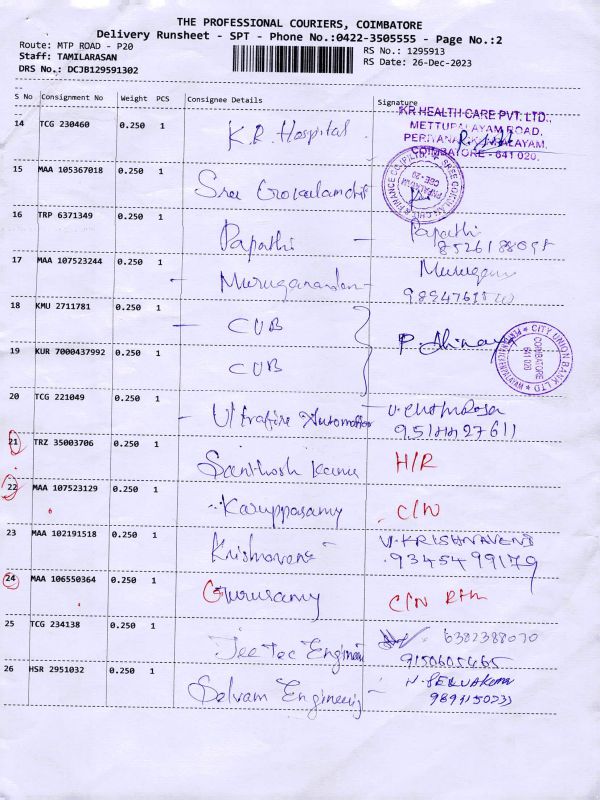 THE PROFESSIONAL COURIERS, COIMBATORE
Delivery Runsheet - SPT - Phone No.:0422-3505555 - Page No.:2
Route: MTP ROAD - P20
RS No.: 1295913
Staff: TAMILARASAN
RS Date: 26-Dec-2023
DRS No.: DCJB129591302
S No Consignment No Weight PCS Consignee Details Signature
14 TCG 230460 0.250 1 K.R. Hospital
KR HEALTH CARE PVT. LTD.,
METTUPALAYAM ROAD,
COIMBATORE - 641 020.
15 MAA 105367018 0.250 1 Sree Gokulamchit
16 TRP 6371349 0.250 1 Papathi - Papathi
17 MAA 107523244 0.250 1 - Muruganandan - Murugan
18 KMU 2711781 0.250 1 - CUB
19 KUR 7000437992 0.250 1 CUB
CITY UNION BANK LTD
COIMBATORE
641 020
20 TCG 221049 0.250 1 - Ultrafine Automation -
9514427611
21 TRZ 35003706 0.250 1 Santhosh Kanna H/R
22 MAA 107523129 0.250 1 Karuppasamy C/N
23 MAA 102191518 0.250 1 Krishnaveni V.KRISHNAVENI
9345499179
24 MAA 106550364 0.250 1 Gurusamy C/N
25 TCG 234138 0.250 1 Jee Tec Engineer 6382388070
9150605465
26 HSR 2951032 0.250 1 Selvam Engineering -